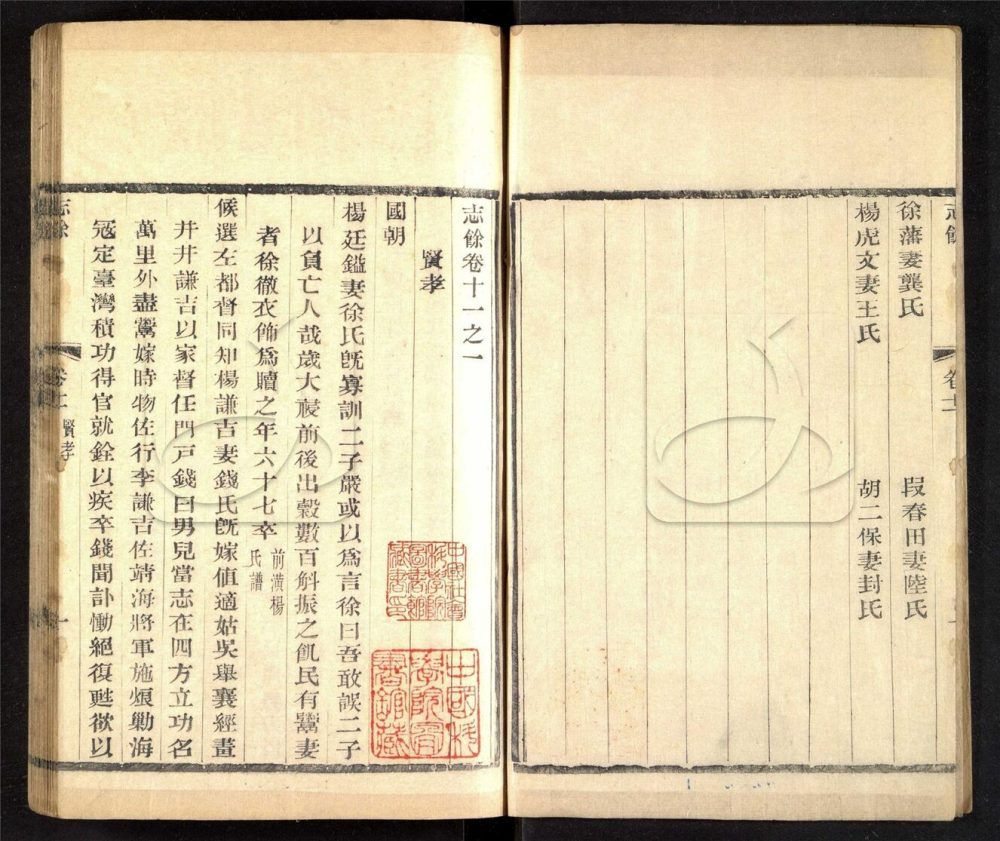 志餘
卷十一
徐藩妻龔氏
段春田妻陸氏
楊虎文妻王氏
胡二保妻封氏
志餘卷十一之一
賢孝
國朝
楊廷鎰妻徐氏旣寡訓二子嚴或以爲言徐曰吾敢誤二子
以負亡人哉歲大祲前後出穀數百斛振之飢民有鬻妻
者徐徹衣飾爲贖之年六十七卒
前潢楊
氏譜
候選左都督同知楊謙吉妻錢氏旣嫁值適姑吳舉襄經畫
井井謙吉以家督任門戸錢曰男兒當志在四方立功名
萬里外盡鬻嫁時物佐行李謙吉佐靖海將軍施烺勦海
冦定臺灣積功得官就銓以疾卒錢聞訃慟絕復甦欲以
志餘
卷十一
賢孝
一
中國社會
科學院
圖書館
藏書印
中國科
學院
書館藏